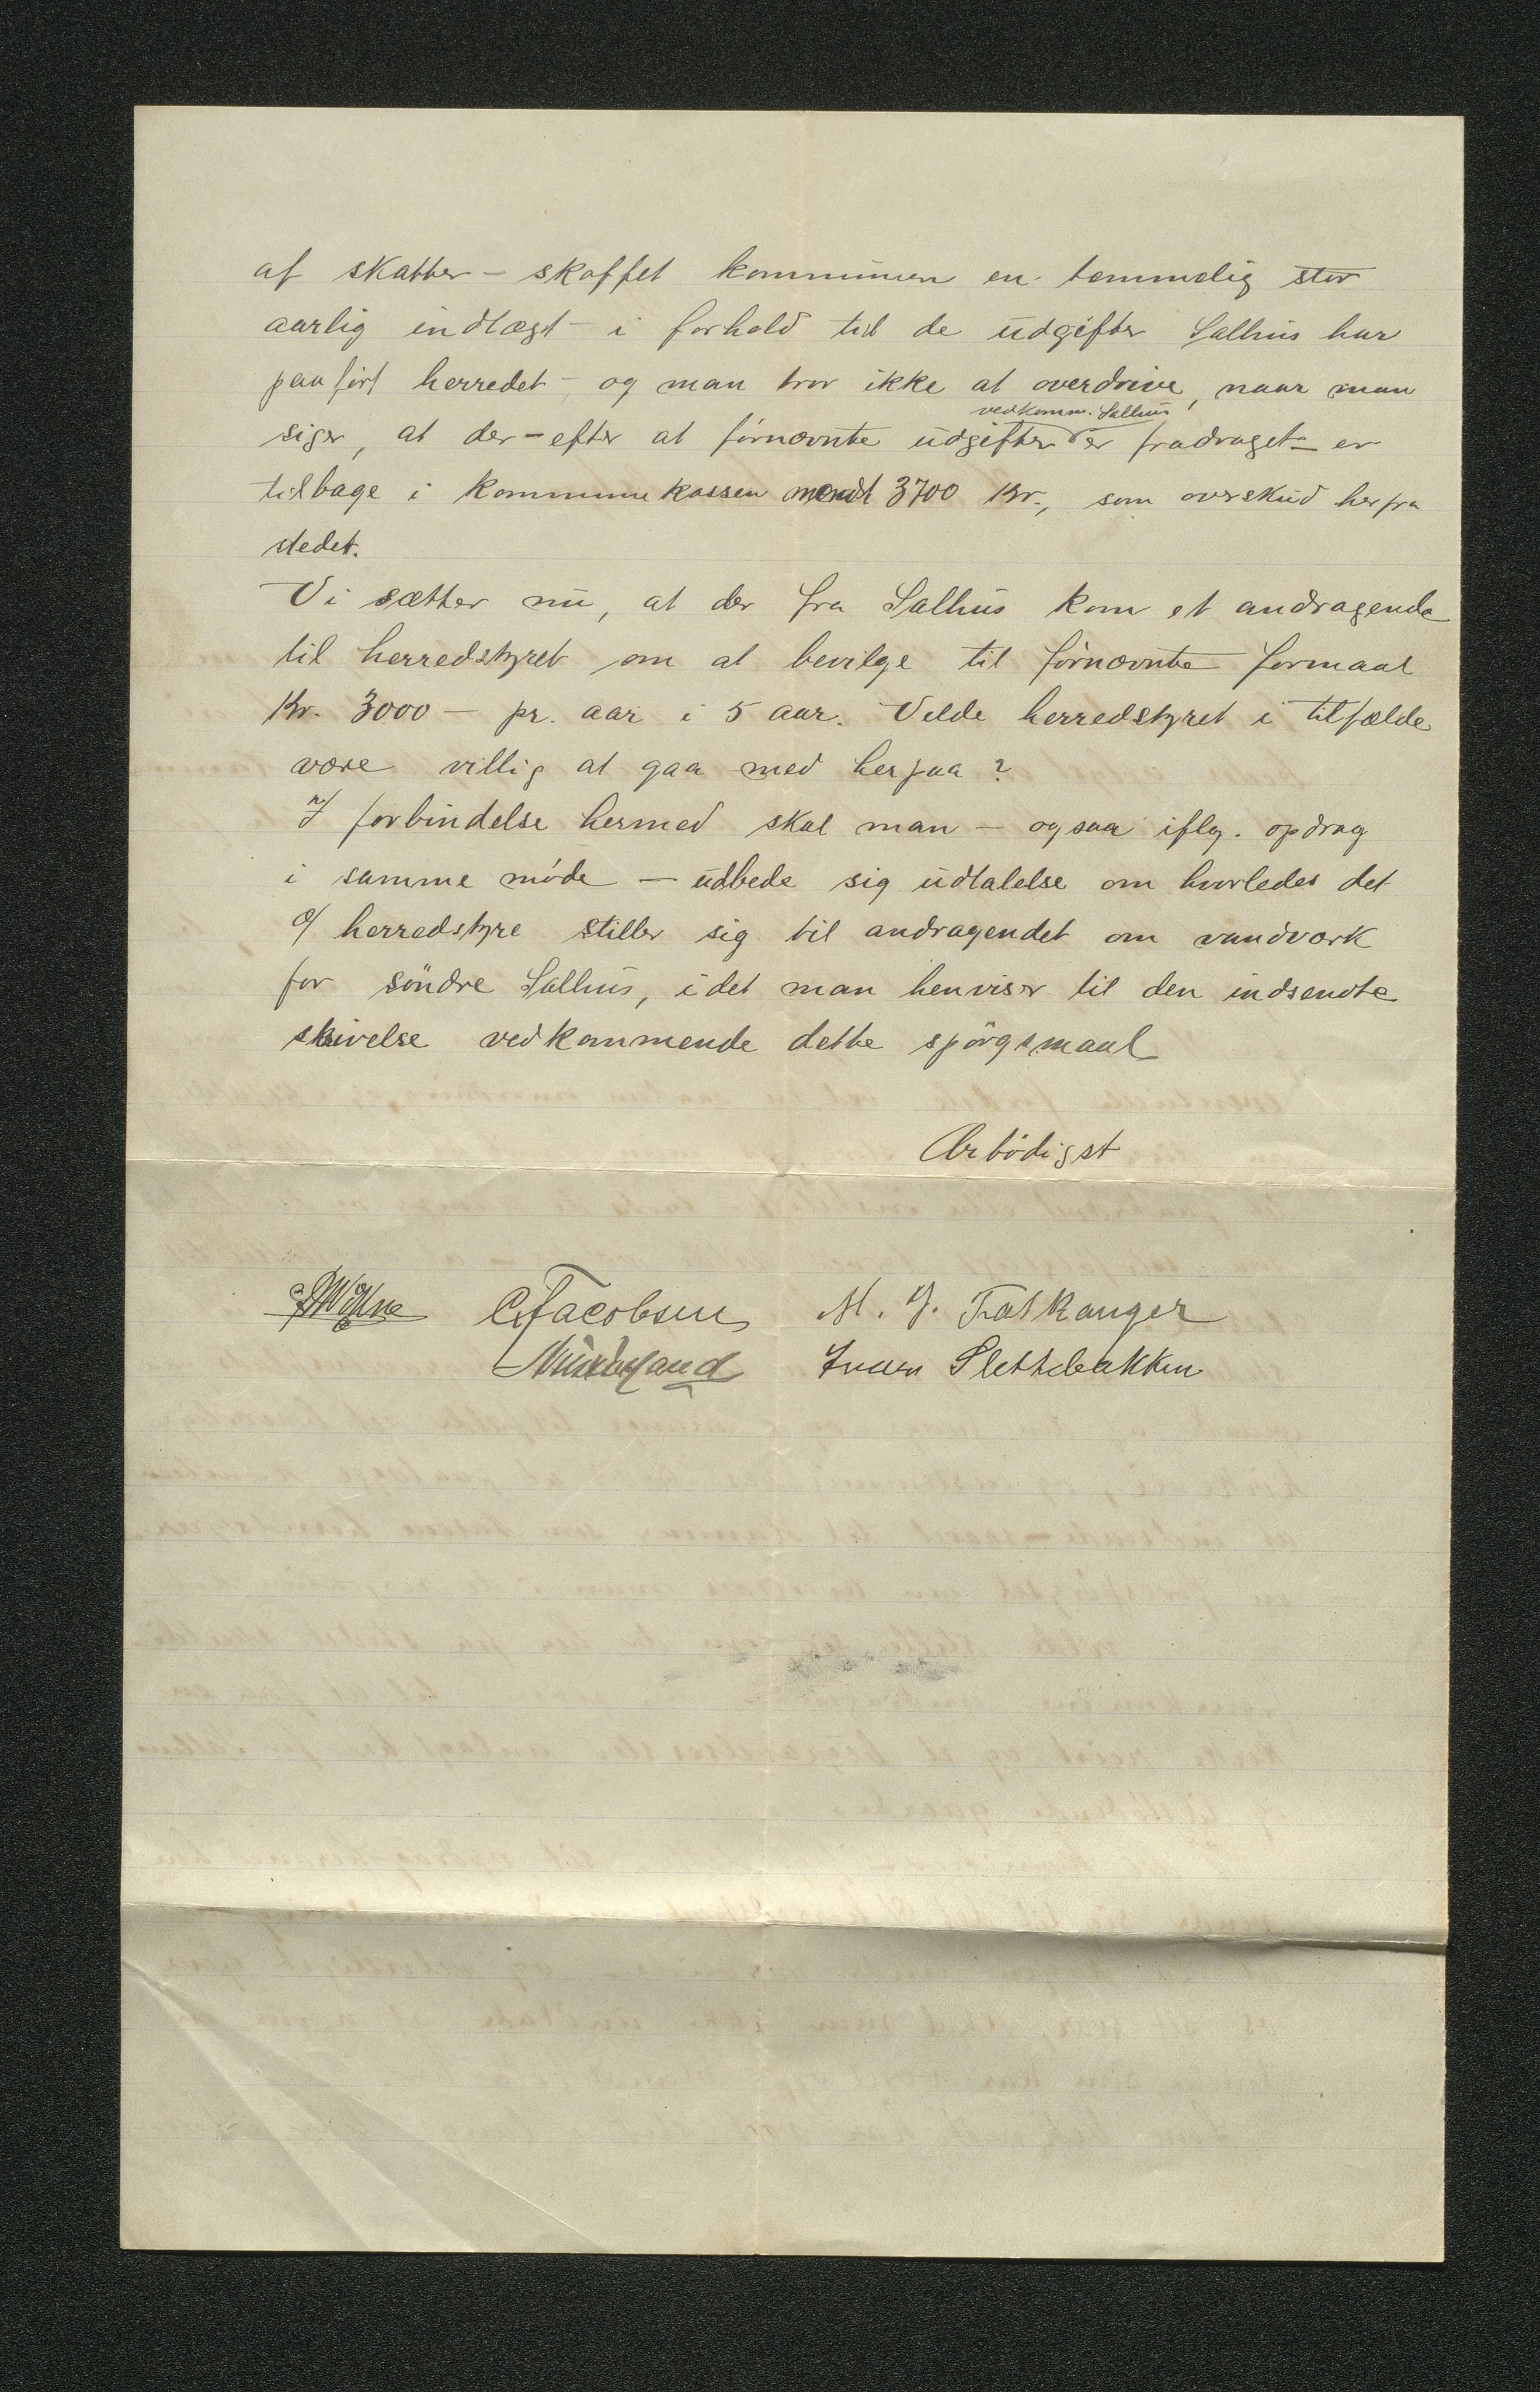 af skatter – skaffet kommunen en temmelig stor
aarlig indtægt – i forhold til de udgifter Salhus har
paaført herredet – og man tror ikke at overdrive, naar man
siger, at der – efter at førnævnte udgifter vedkomm. Salhus er fradraget – er
tilbage i kommunekassen mendst 3700 Kr., som overskud herfra
stedet.
Vi sætter nu, at der fra Salhus kom et andragende
til herredstyret om at bevilge til førnævnte formaal
Kr. 3000 – pr. aar i 5 aar. Vilde herredstyret i tilfælde
være villig at gaa med herpaa?
I forbindelse hermed skal man – ogsaa iflg. opdrag
i samme møde – udbede sig udtalelse om hvorledes det
o/ herredstyre stiller sig til andragendet om vandværk
for søndre Salhus, idet man henviser til den indsendte
skrivelse vedkommende dette spørgsmaal
Ærbødigst
C. Jacobsen M. J. Fatskanger
Ivar Slettebakken